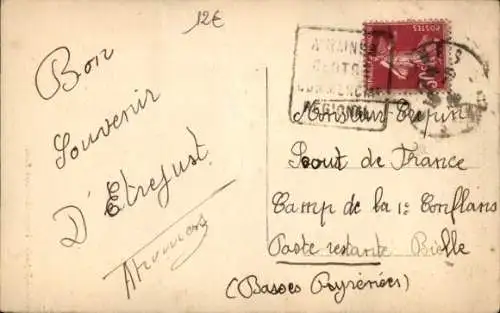 12€
Bon
Souvenir
D'Etrejust
POSTES
COMMERCIAL
REGIONAL
Monsieur Crépin
Scout de France
Camp de la 1e Conflans
Poste restante Bielle
(Basses Pyrénées)